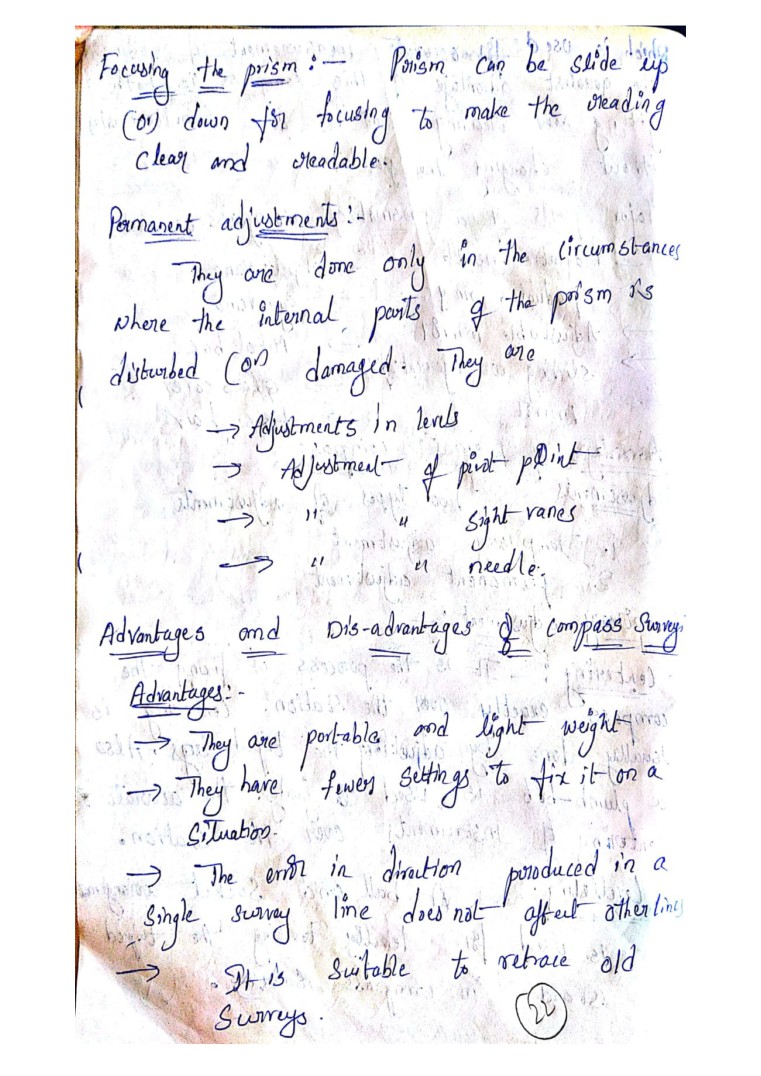 Focusing the prism :- Prism can be slide up
(or) down for focusing to make the reading
Clear and readable.
Permanent adjustments :-
They are done only in the circumstances
where the internal parts of the prism is
disturbed (or) damaged. They are
→ Adjustments in levels
→ Adjustment of pivot point
→ " " Sight vanes
→ " " needle.
Advantages and Dis-advantages of compass Survey:
Advantages :-
→ They are portable and light weight
→ They have fewer settings to fix it on a
Situation.
→ The error in direction produced in a
Single survey line does not affect other lines
→ It is suitable to retrace old
Surveys.
22